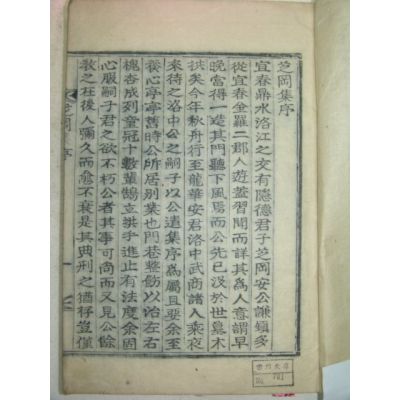 芝岡集序
宜春鼎水洛江之交有隱德君子芝岡安公謙鎭多
從宜春金羅二郡人遊盖習聞而詳其爲人意謂早
晩當得一造其門聽下風焉而公先已沒於世墓木
拱矣今年秋舟行至龍華安君洛中武商諸人乘夜
來待之洛中公之嗣子以公遺集序爲屬且要余至
養心亭亭舊時公所居别業也門巷整飭以治左右
槐杏成列童冠十數輩鵠立拱手進止有法度余固
心服嗣子君之欲不朽公者其事可尙而又見公餘
敎之在後人彌久而愈不衰是其典刑之猶存豈僅
序